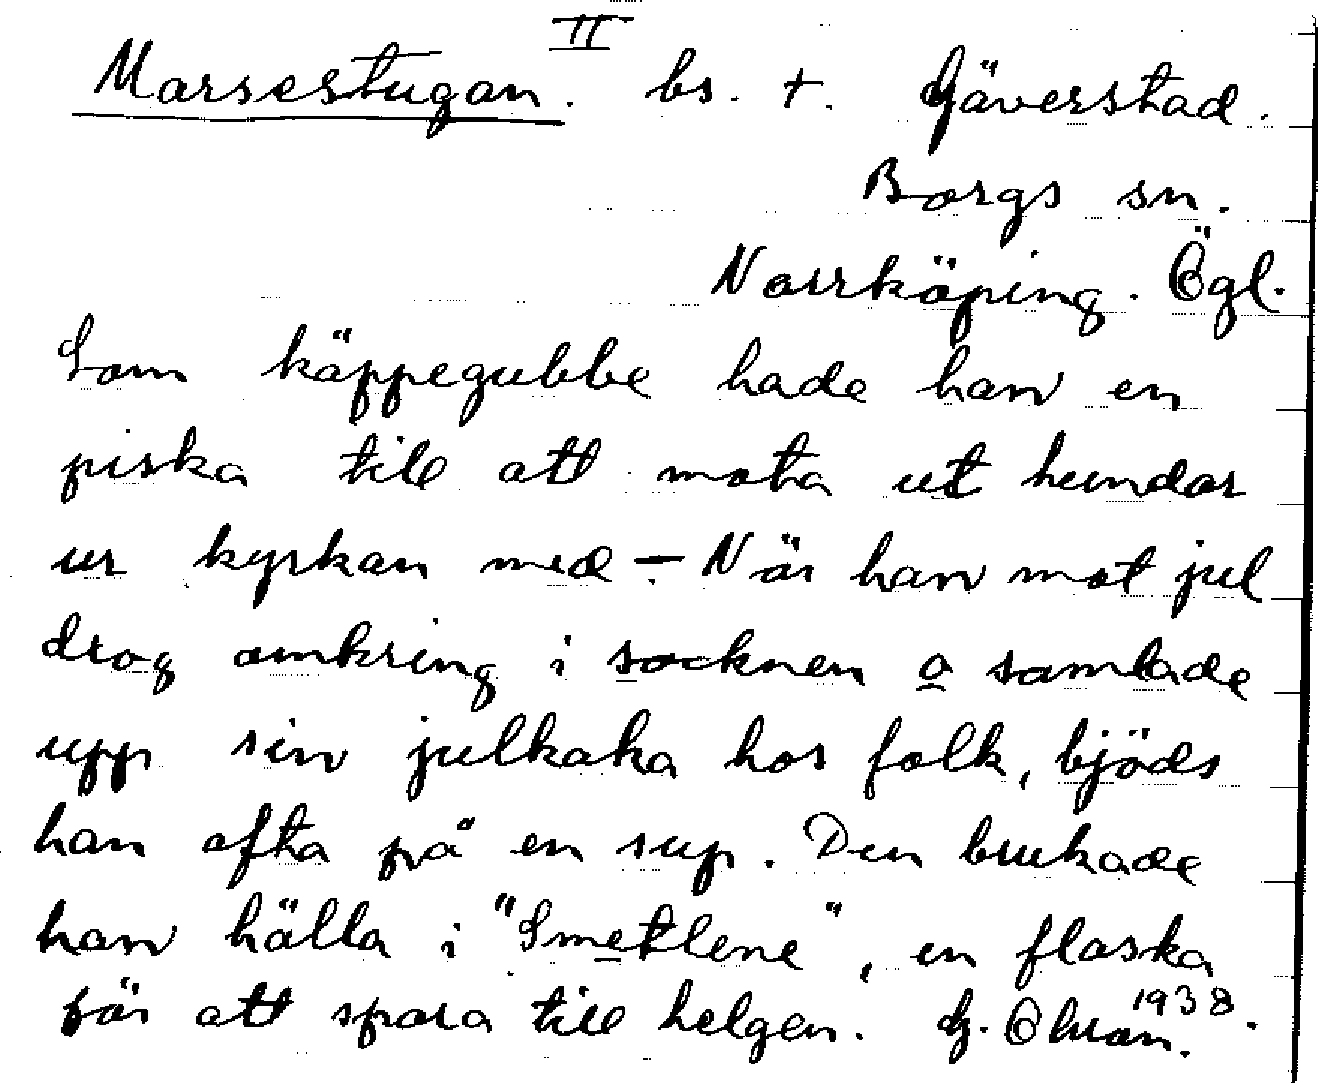 II
Marsestugan. bs. +. Gäverstad.
Borgs sn.
Norrköping. Ögl.
Som käppegubbe hade han en
piska till att mota ut hundar
ur kyrkan med — När han mot jul
drog omkring i socknen o samlade
upp sin julkaka hos folk, bjöds
han ofta på en sup. Den brukade
han hälla i "Smetlene", en flaska
för att spara till helgen. G. Ohran. 1938.